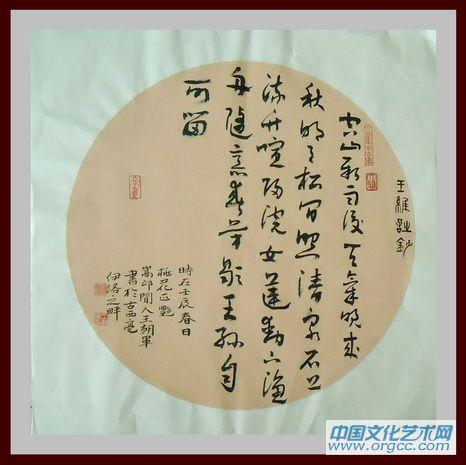 王維詩鈔
空山新雨後天氣晚來
秋明月松間照清泉石上
流竹喧歸浣女蓮動下漁
舟隨意春芳歇王孫自
可留
時在壬辰春日
桃花正艷
嵩邙閒人王朝軍
書於古西亳
伊洛之畔
中国文化艺术网
www.orgcc.com